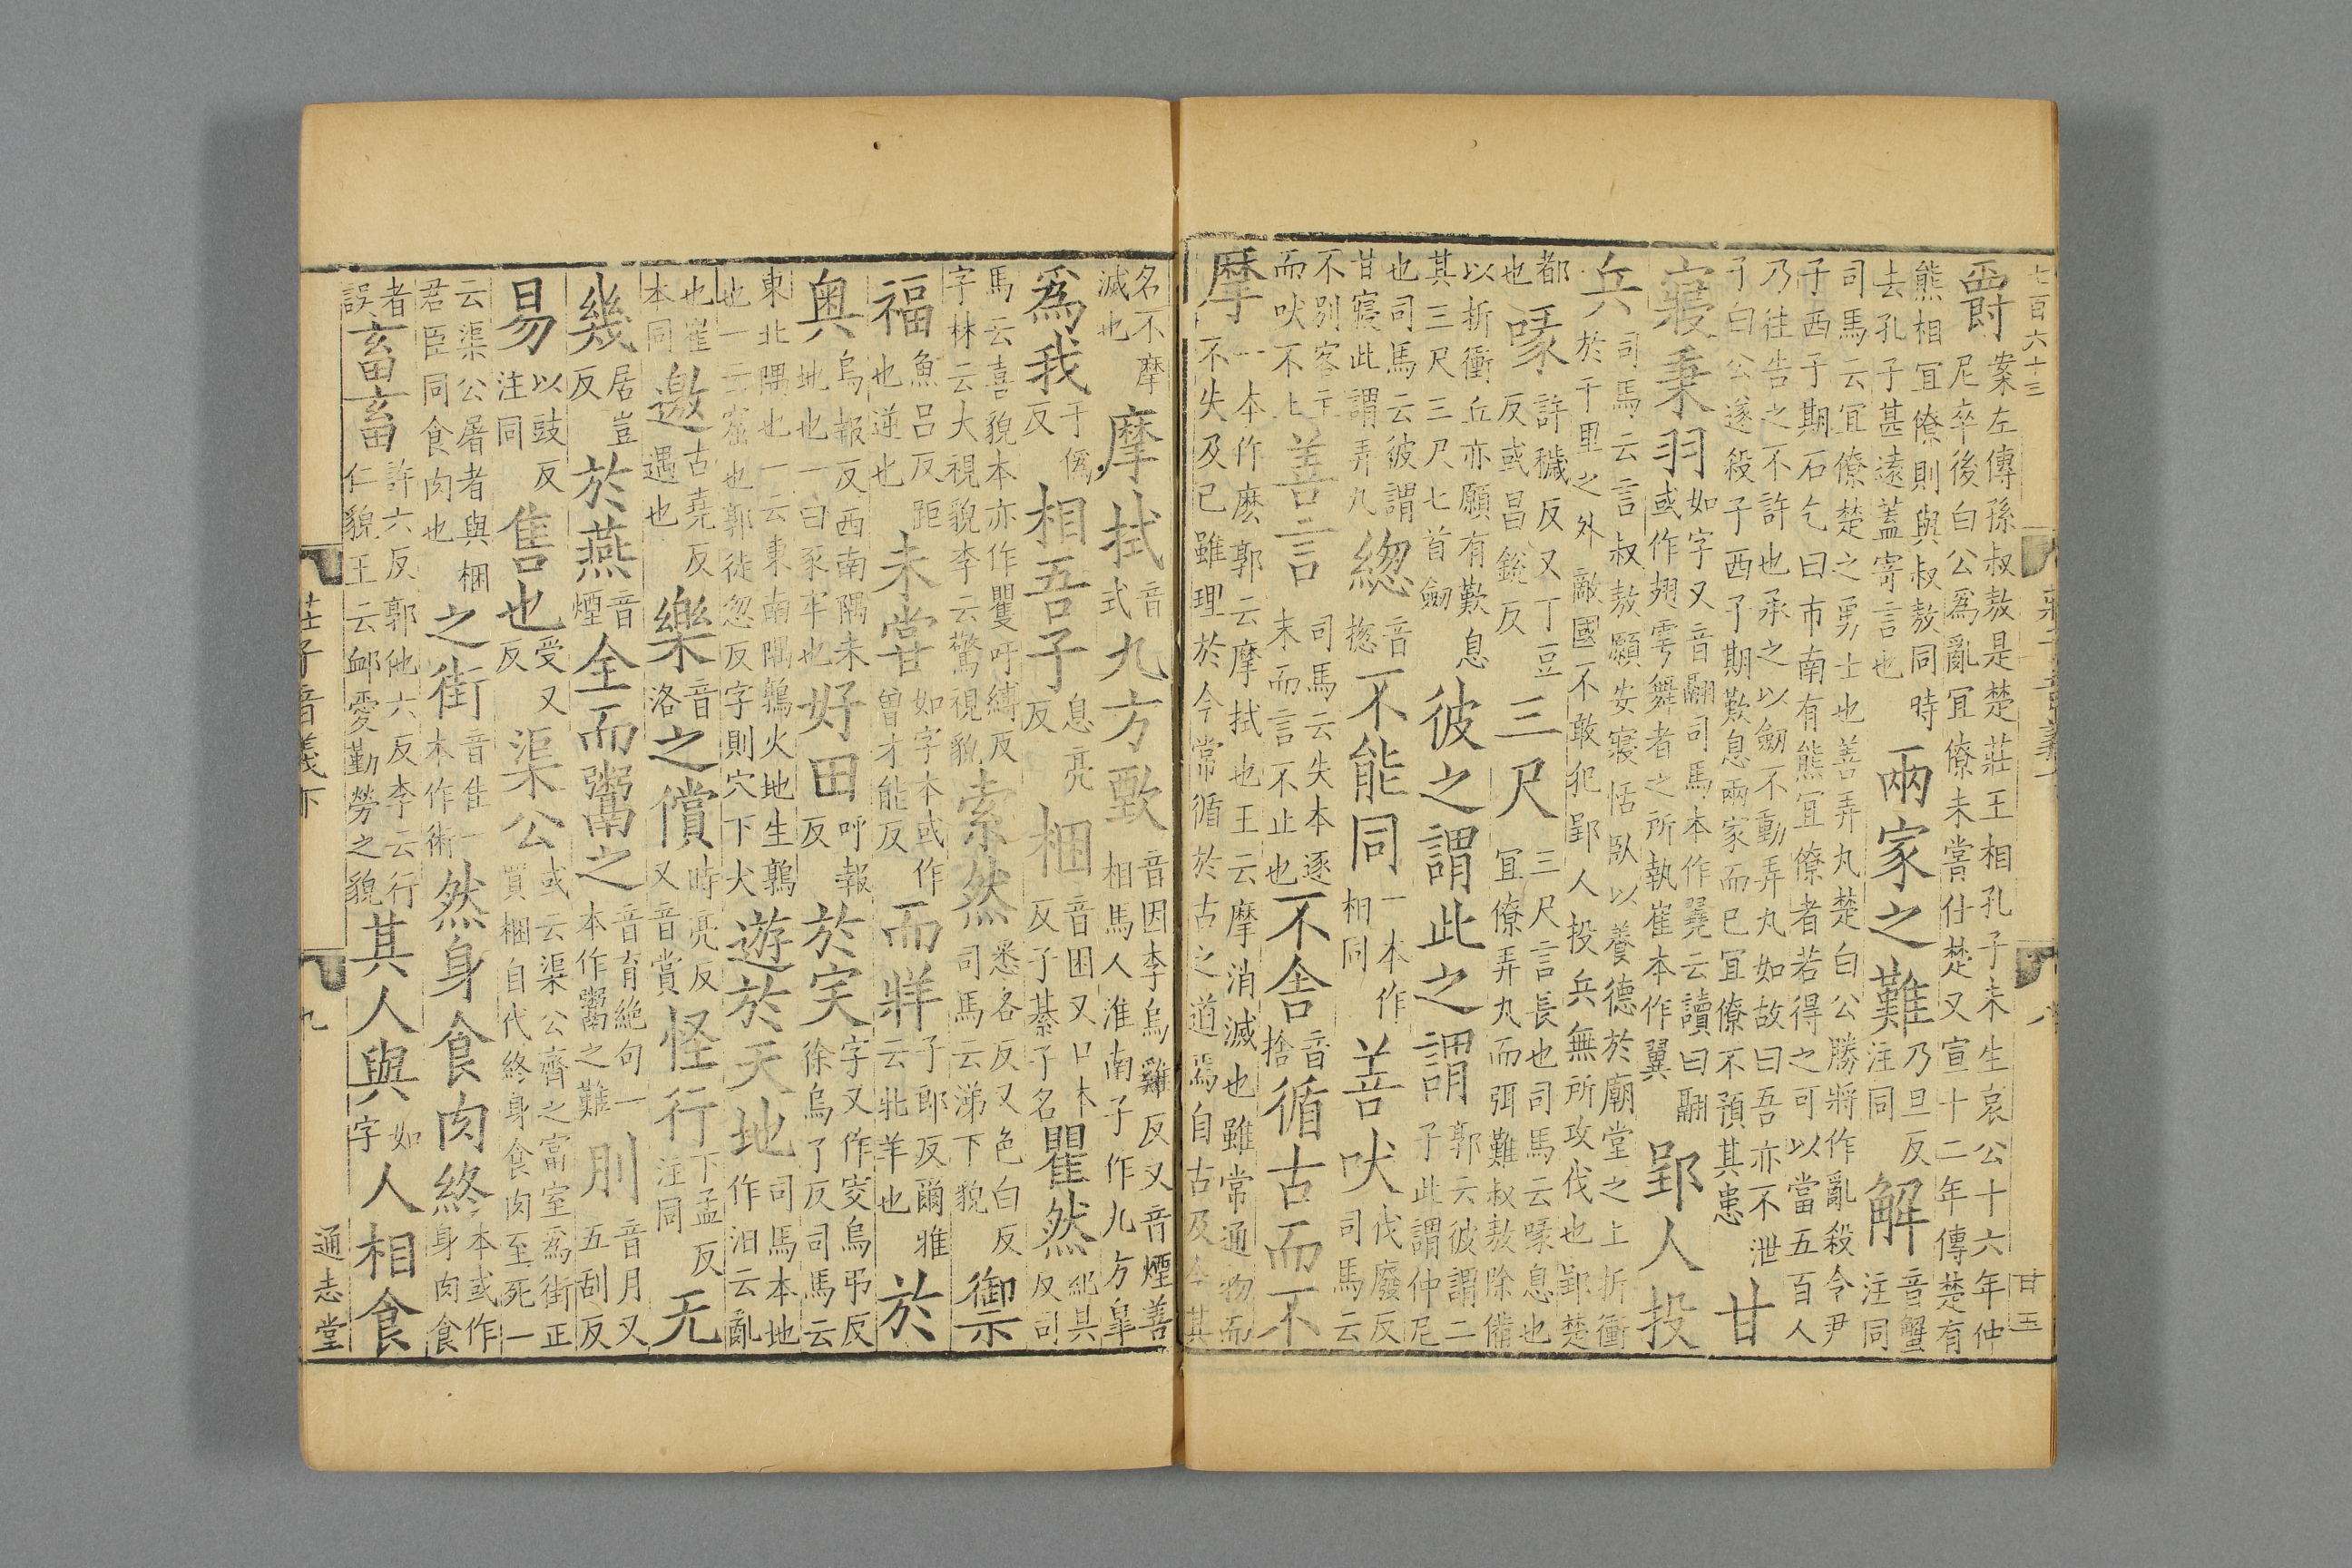 七百六十三 莊子音義下 八 廿五
爵案左傳孫叔敖是楚莊王相孔子未生哀公十六年仲尼卒後白公爲亂宜僚未嘗仕楚又宣十二年傳楚有
熊相宜僚則與叔敖同時去孔子甚遠蓋寄言也兩家之難乃旦反注同解音蟹注同
司馬云宜僚楚之勇士也善弄丸楚白公勝將作亂殺令尹子西子期石乞曰市南有熊宜僚者若得之可以當五百人
乃往告之不許也承之以劒不動弄丸如故曰吾亦不泄子白公遂殺子西子期歎息兩家而已宜僚不預其患甘
寢秉羽如字又音翿司馬本作云讀曰翿或作翅雩舞者之所執崔本作翼郢人投
兵司馬云言叔敖願安寢恬臥以養德於廟堂之上折衝於千里之外敵國不敢犯郢人投兵無所攻伐也郢楚
都也喙許穢反又丁豆反或昌銳反三尺三尺言長也司馬云喙息也宜僚弄丸而弭難叔敖除備
以折衝丘亦願有歎息其三尺三尺匕首劒彼之謂此之謂郭云彼謂二子此謂仲尼
也司馬云彼謂甘寢此謂弄丸緫音揔不能同一本作相同善吠伐廢反司馬云
不別客主而吠不止善言司馬云失本逐末而言不止也不舍音捨循古而不
摩一本作磨郭云摩拭也王云摩消滅也雖常通物而不失及己雖理於今常循於古之道焉自古及今其
名不摩滅也摩拭音式九方歅音因李烏雞反又音煙善相馬人淮南子作九方皋
爲我于僞反相吾子息亮反梱音困又口本反子綦子名瞿然紀具反司
馬云喜貌本亦作矍吁縛反字林云大視貌李云驚視貌索然悉各反又色白反司馬云涕下貌禦
福魚呂反距也逆也未嘗如字本或作曾才能反而牂子郎反爾雅云牝羊也於
奧烏報反西南隅未地也一曰豕牢也好田呼報反於宎字又作窔烏弔反徐烏了反司馬云
東北隅也一云東南隅鶉火地生鶉也一云窟也郭徒忽反字則穴下犬遊於天地司馬本地作汨云亂
也崔本同邀古堯反遇也樂音洛之償時亮反又音賞怪行下孟反注同无
幾居豈反於燕音煙全而鬻之音育絶句一本作鬻之難刖音月又五刮反
易以豉反注同售也受又反渠公或云渠公齊之富室爲街正買梱自代終身食肉至死一
云渠公屠者與梱君臣同食肉也之街音隹一本作術然身食肉終本或作身肉食
者誤畜畜許六反郭他六反李云行仁貌王云䘏愛勤勞之貌其人與如字人相食
莊子音義下 九 通志堂